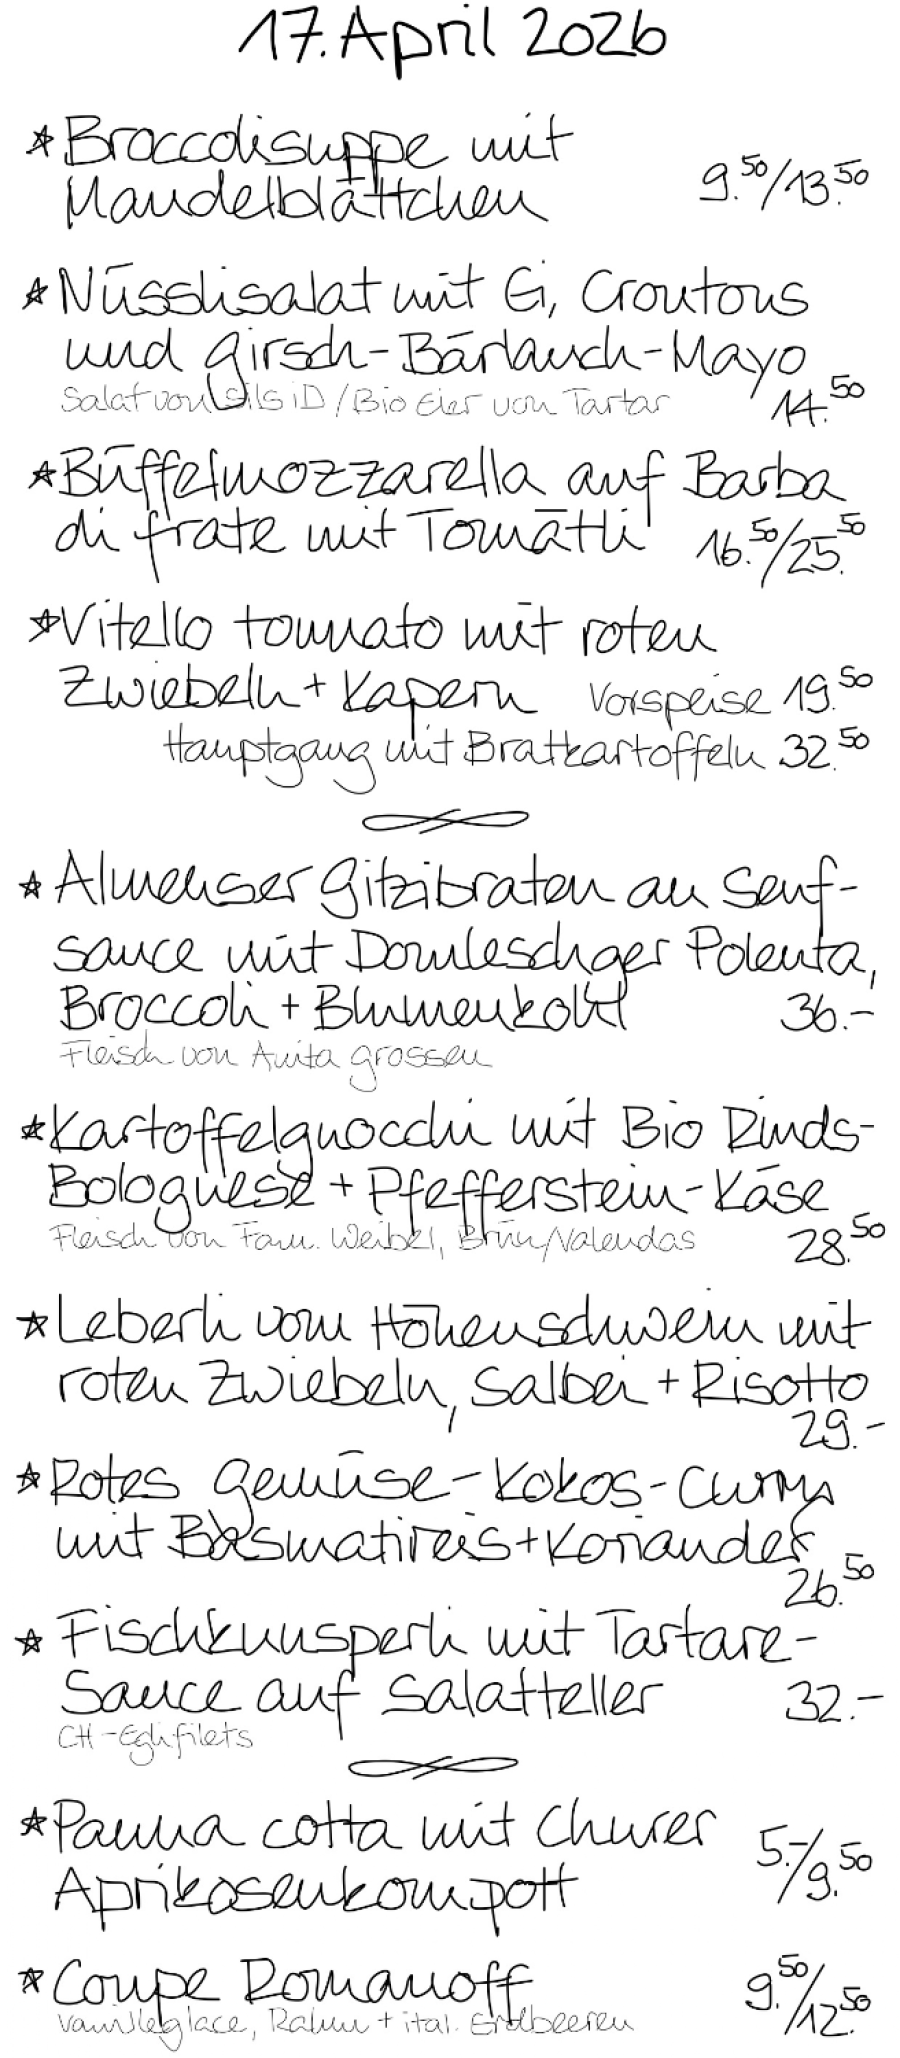 17. April 2026
* Broccolisuppe mit
Mandelblättchen 9.50/13.50
* Nüsslisalat mit Ei, Croutons
und Girsch-Bärlauch-Mayo
Salat von Sils iD / Bio Eier von Tartar 14.50
* Büffelmozzarella auf Barba
di frate mit Tomätli 16.50/25.50
* Vitello tonnato mit roten
Zwiebeln + Kapern Vorspeise 19.50
Hauptgang mit Bratkartoffeln 32.50
* Almenser Gitzibraten an Senf-
sauce mit Domleschger Polenta,
Broccoli + Blumenkohl 36.-
Fleisch von Anita Grossen
* Kartoffelgnocchi mit Bio Rinds-
Bolognese + Pfefferstein-Käse
Fleisch von Fam. Weibel, Brün/Valendas 28.50
* Leberli vom Höhenschwein mit
roten Zwiebeln, Salbei + Risotto
29.-
* Rotes Gemüse-Kokos-Curry
mit Basmatireis + Koriander
26.50
* Fischknusperli mit Tartare-
Sauce auf Salatteller 32.-
CH-Eglifilets
* Panna cotta mit Churer
Aprikosenkompott 5.-/9.50
* Coupe Romanoff 9.50/12.50
Vanilleglace, Rahm + ital. Erdbeeren